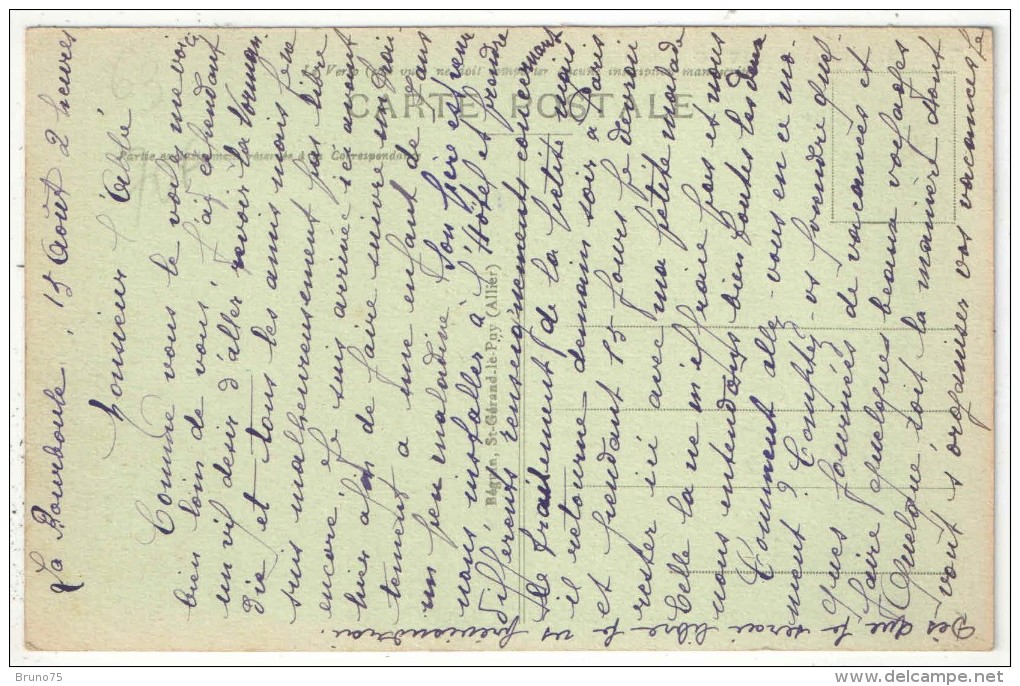 La Bourboule, 15 Août 2 heures
Monsieur l'abbé
Comme vous le voyez me voici
bien loin de vous, j'ai cependant
un vif désir d'aller revoir la Norman
die et tous les amis mais je ne
suis malheureusement pas libre
encore. Je suis arrivé ici avant
hier afin de faire suivre un trai
tement à une enfant de 7 ans
un peu maladive. Son père est venu
nous installer à l'Hôtel et prendre
différents renseignements concernant
le traitement de la petite mais
il retourne demain soir à Paris
et pendant 15 jours je devrai
rester ici avec ma petite malade
Cela ne m'effraie pas et nous
nous entendons bien toutes les deux
Comment allez-vous en ce mo-
ment ? Comptez-vs prendre quel-
ques journées de vacances et
faire quelques beaux voyages
Quelque soit la manière dont
vous organisez vos vacances
Dès que je serai libre je vs préviendrai.
Le Verso (côté vue) ne doit comporter aucune inscription manuscrite
CARTE POSTALE
Partie exclusivement réservée à la Correspondance
Béguin, St-Gérand-le-Puy (Allier)
Bruno75
delcampe.net